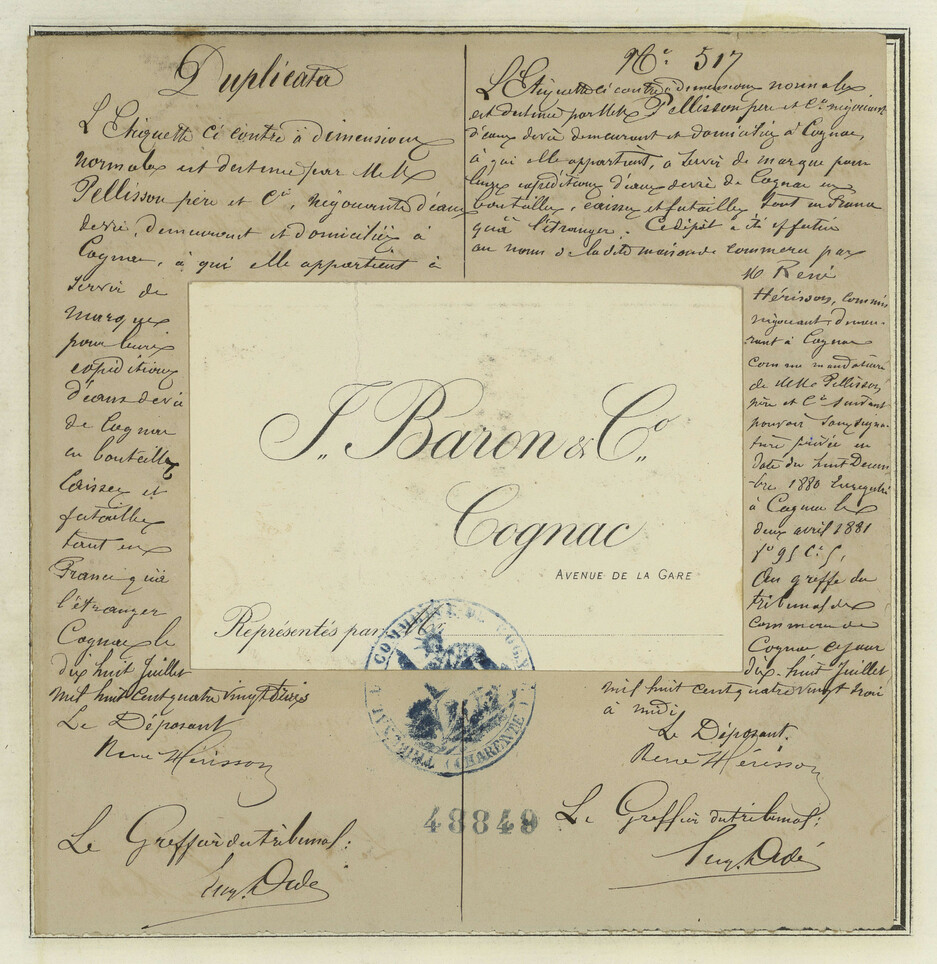 Duplicata
L'Etiquette ci contre à dimensions
normales est destinée par MM
Pellisson père et Cie, négociants d'eaux
de vie, demeurant et domiciliés à
Cognac, à qui elle appartient à
servir de
marque
pour leurs
expéditions
d'eaux de vie
de Cognac
en bouteilles
caisses et
futailles
tant en
France qu'à
l'étranger
Cognac le
dix huit Juillet
mil huit cent quatre vingt trois
Le Déposant
René Hérisson
Le Greffier du tribunal:
No 517
L'Etiquette ci contre à dimensions normales
est destinée par MM Pellisson père et Cie négociants
d'eaux de vie demeurant et domiciliés à Cognac,
à qui elle appartient, à servir de marque pour
leurs expéditions d'eaux de vie de Cognac en
bouteilles, caisses et futailles tant en France
qu'à l'étranger. Ce dépôt a été effectué
au nom de la dite maison de commerce par
M René
Hérisson, commis
négociant, demeu-
rant à Cognac
comme mandataire
de MM Pellisson
père et Cie suivant
pouvoir sous signa-
ture privée en
date du huit Décem-
bre 1880 Enregistré
à Cognac le
deux avril 1881
fo 95 Co 5,
Au greffe du
tribunal de
commerce de
Cognac ce jour
dix-huit Juillet
mil huit cent quatre vingt trois
à midi
Le Déposant.
René Hérisson
Le Greffier du tribunal:
J. Baron & Co
Cognac
AVENUE DE LA GARE
Représentés par Mr
TRIBUNAL DE COMMERCE DE COGNAC (CHARENTE)
48849